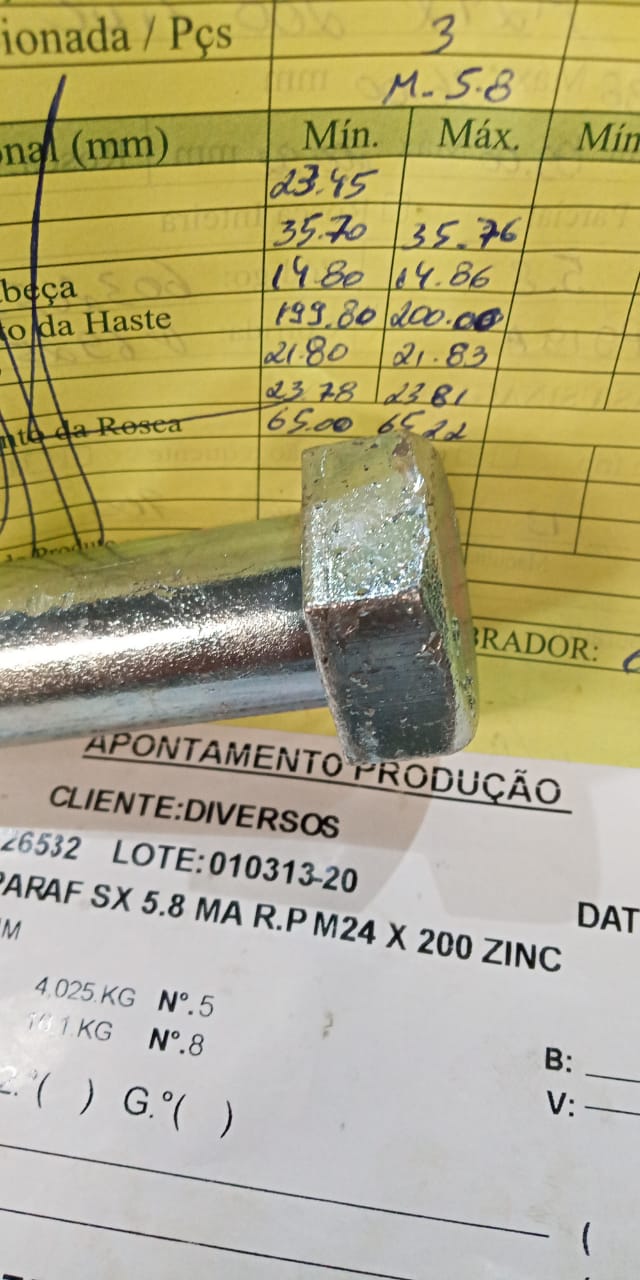 ionada / Pçs 3
M - 5.8
nal (mm) Mín. Máx. Mín
23.45
35.70 35.76
beça 14.80 14.86
o da Haste 199.80 200.00
21.80 21.83
23.78 23.81
nto da Rosca 65.00 65.22
BRADOR:
APONTAMENTO PRODUÇÃO
CLIENTE:DIVERSOS
26532 LOTE:010313-20
PARAF SX 5.8 MA R.P M24 X 200 ZINC
DAT
M
4,025.KG Nº.5
1.KG Nº.8
B:
V:
2.º( ) G.º( )
(